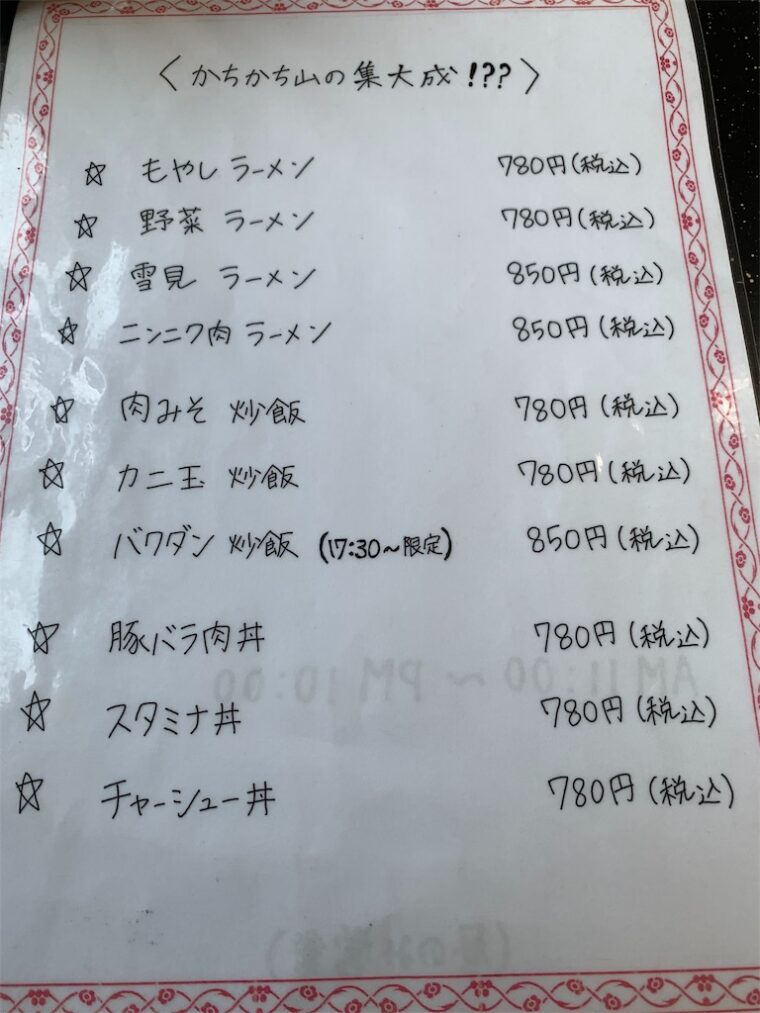 〈かちかち山の集大成!??〉
☆ もやしラーメン 780円(税込)
☆ 野菜 ラーメン 780円(税込)
☆ 雪見 ラーメン 850円(税込)
☆ ニンニク肉 ラーメン 850円(税込)
☆ 肉みそ 炒飯 780円(税込)
☆ カニ玉 炒飯 780円(税込)
☆ バクダン 炒飯 (17:30~限定) 850円(税込)
☆ 豚バラ肉丼 780円(税込)
AM 11:00 ~ PM 10:00
☆ スタミナ丼 780円(税込)
☆ チャーシュー丼 780円(税込)